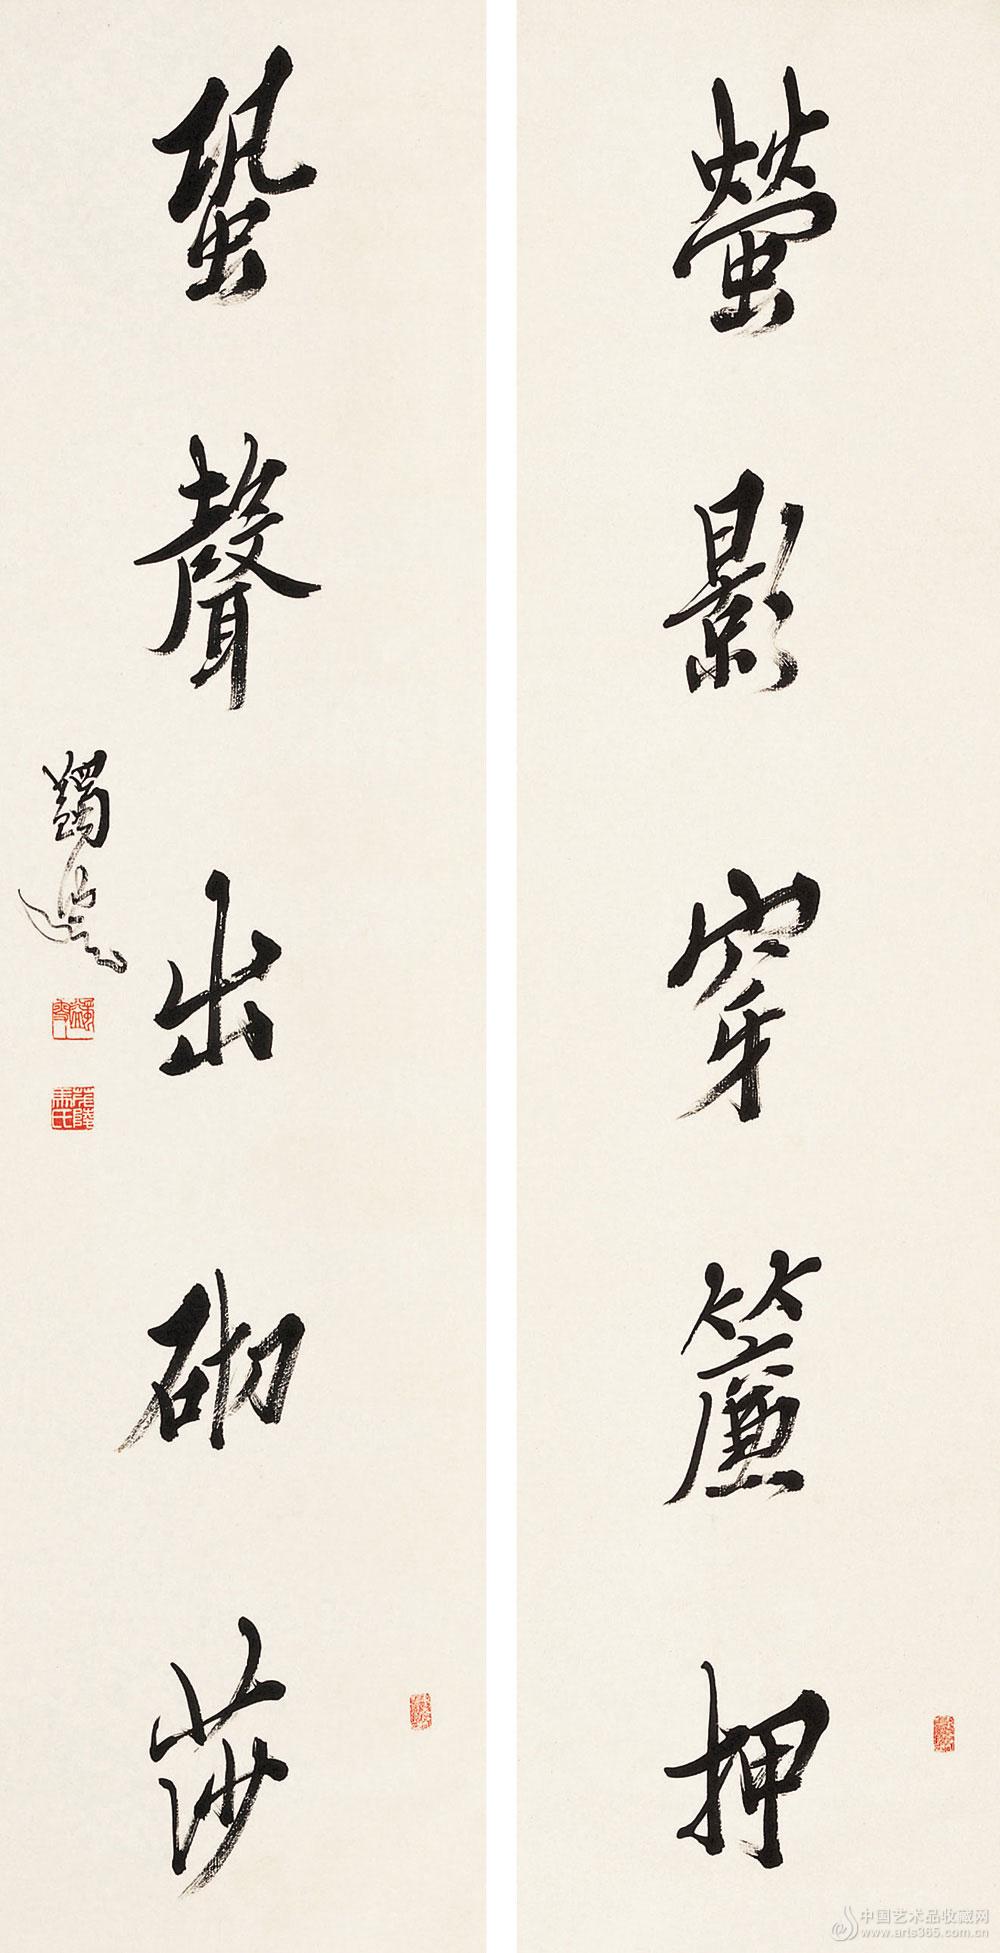 螢影穿簾押
蛩聲出砌莎
蠲叟
中国艺术品收藏网
www.arts365.com.cn